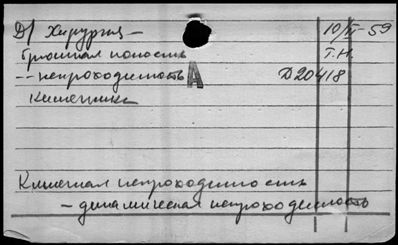 Д/ Хирургия – 10/III-59
Брюшная полость Т.Н.
-- непроходимость Д20418
А
кишечника
Кишечная непроходимость
– динамическая непроходимость